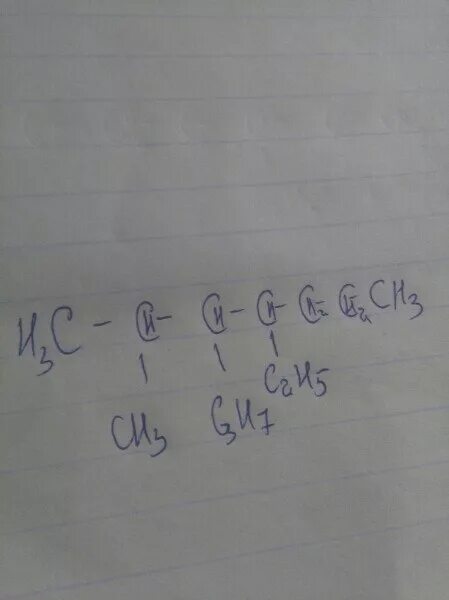 H₃C – CH – CH – CH – CH₂ – CH₂ CH₃
CH₃ C₃H₇ C₂H₅